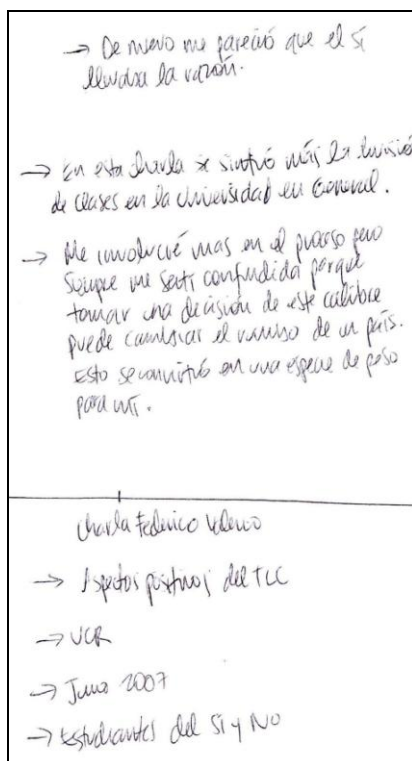 → De nuevo me pareció que el sí
llevaba la razón.
→ En esta charla se sintió más la división
de clases en la Universidad en General.
→ Me involucré mas en el proceso pero
siempre me sentí confundida porque
tomar una decisión de este calibre
puede cambiar el rumbo de un país.
Esto se convirtió en una especie de peso
para mí.
charla Federico
→ Aspectos positivos del TLC
→ UCR
→ Junio 2007
→ Estudiantes del Sí y No